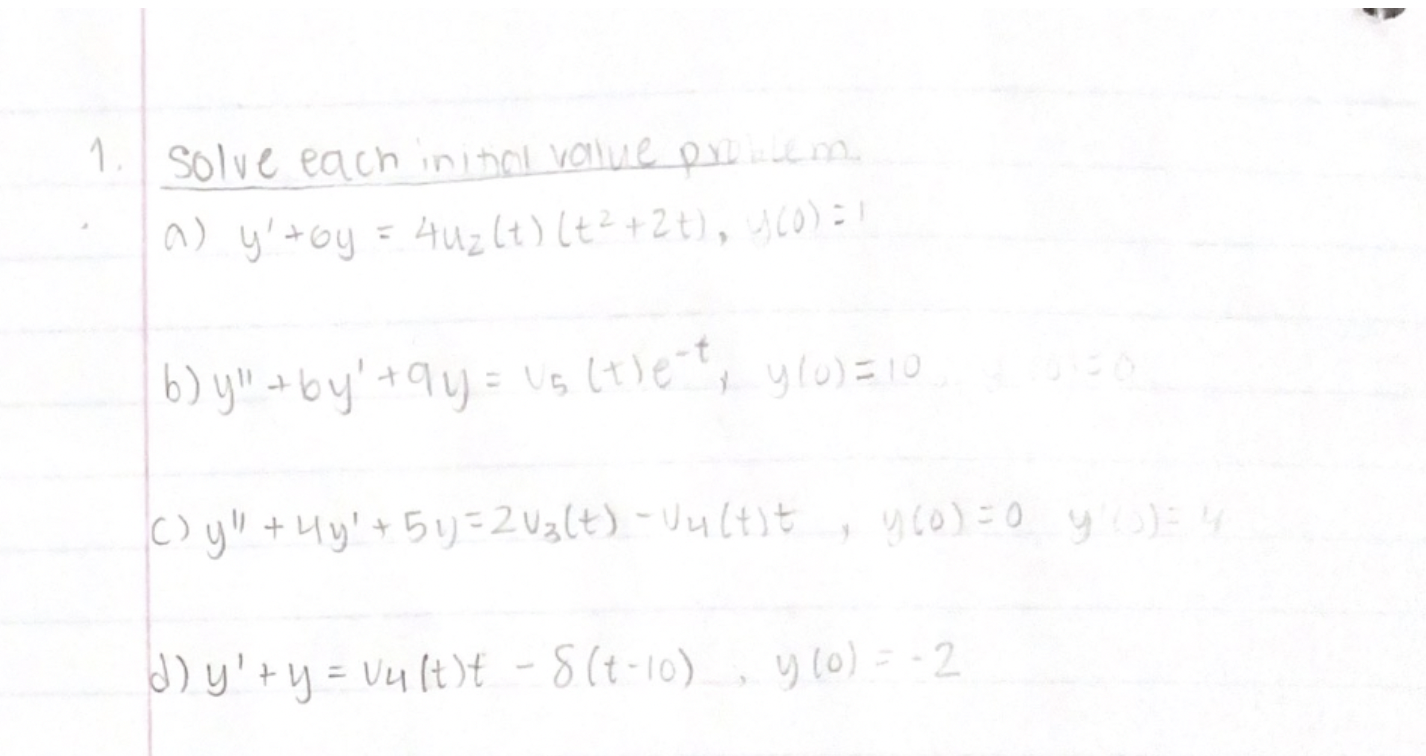 1. Solve each initial value problem
a) y'+6y = 4u₂(t)(t²+2t), y(0)=1
b) y''+6y'+9y = u₅(t)e⁻ᵗ, y(0)=10, y'(0)=0
c) y''+4y'+5y=2u₃(t)-u₄(t)t, y(0)=0 y'(0)=4
d) y'+y = u₄(t)t - δ(t-10), y(0)=-2